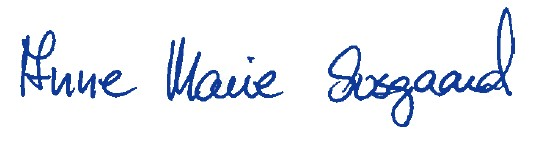 Anne Marie Susgaard